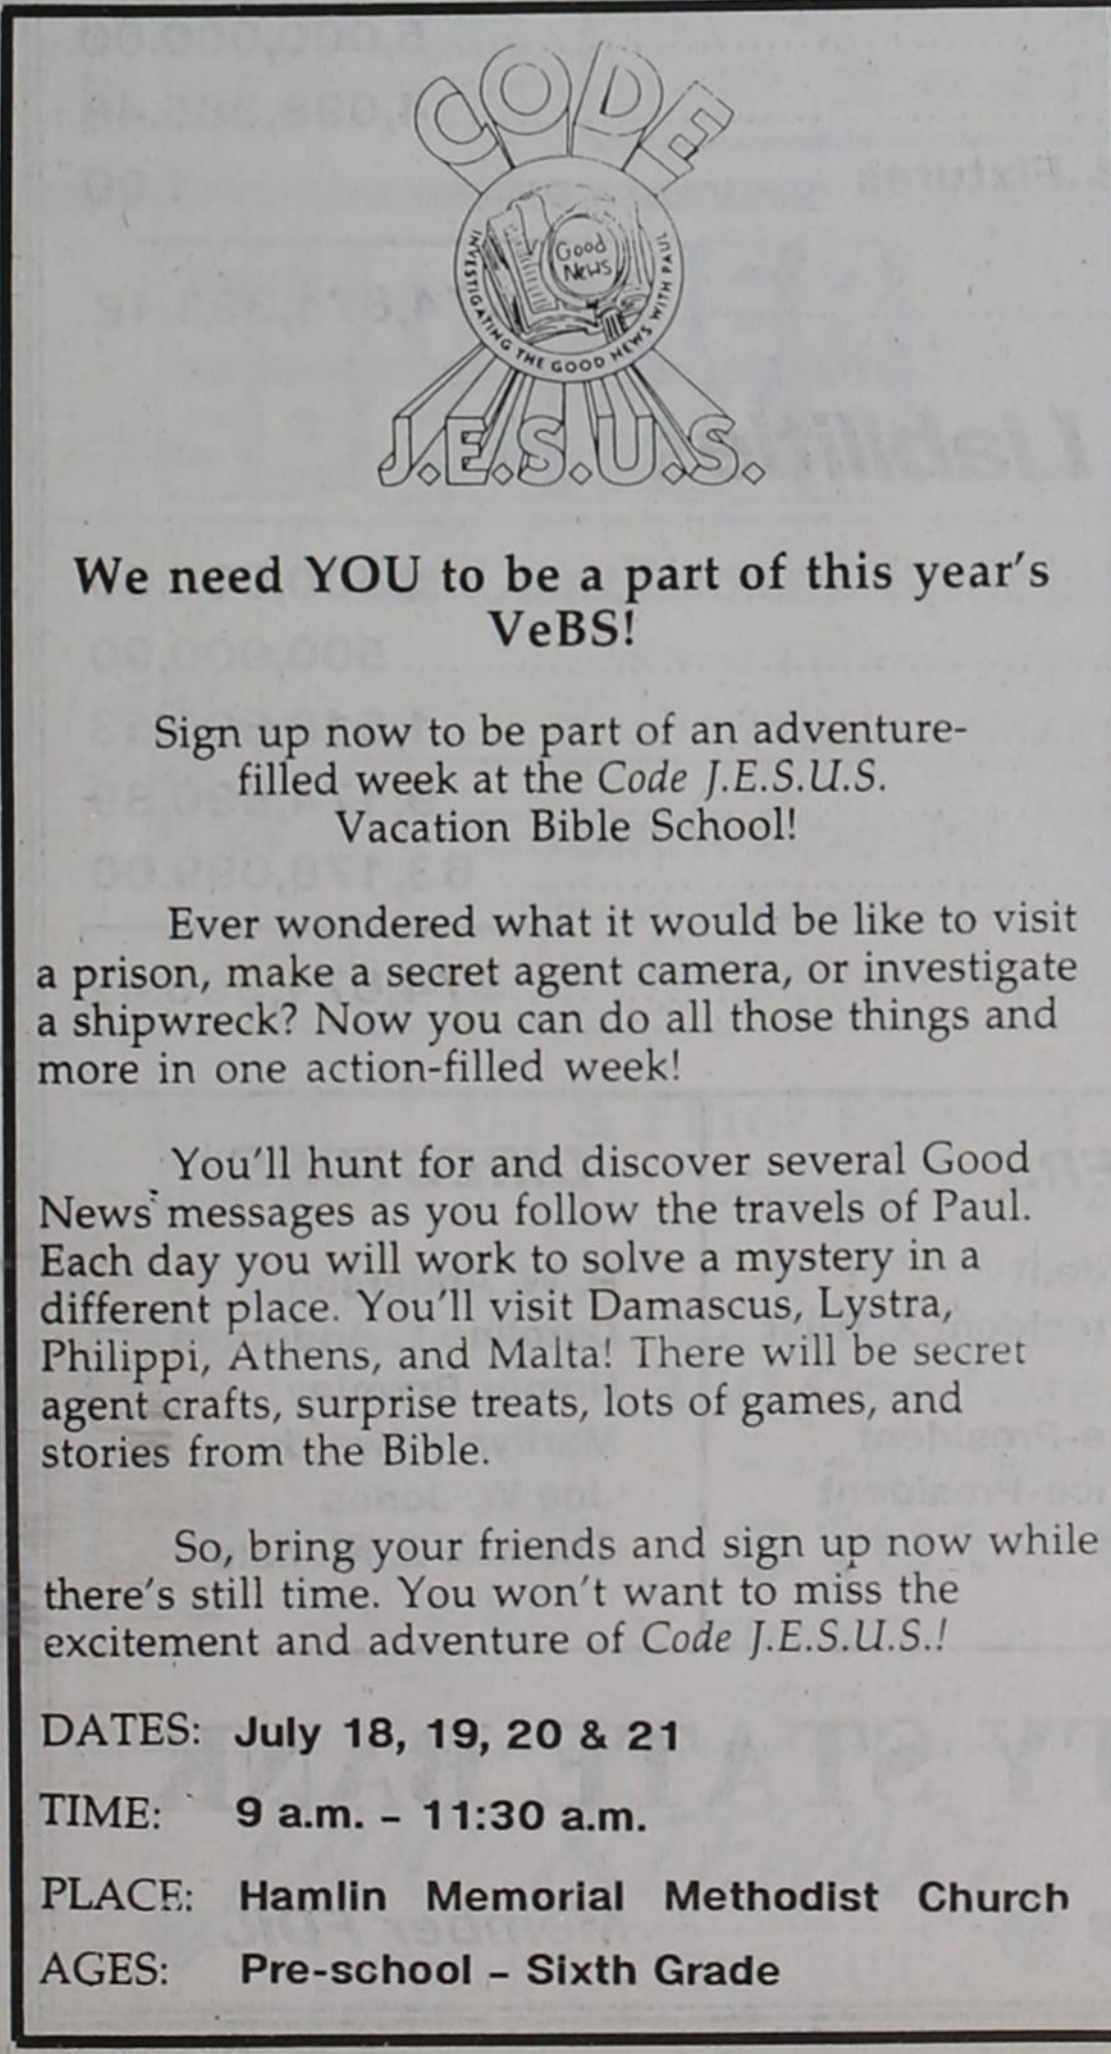 CODE
Good
News
INVESTIGATING THE GOOD NEWS WITH PAUL
J.E.S.U.S.
We need YOU to be a part of this year's
VeBS!
Sign up now to be part of an adventure-
filled week at the Code J.E.S.U.S.
Vacation Bible School!
Ever wondered what it would be like to visit
a prison, make a secret agent camera, or investigate
a shipwreck? Now you can do all those things and
more in one action-filled week!
You'll hunt for and discover several Good
News messages as you follow the travels of Paul.
Each day you will work to solve a mystery in a
different place. You'll visit Damascus, Lystra,
Philippi, Athens, and Malta! There will be secret
agent crafts, surprise treats, lots of games, and
stories from the Bible.
So, bring your friends and sign up now while
there's still time. You won't want to miss the
excitement and adventure of Code J.E.S.U.S.!
DATES: July 18, 19, 20 & 21
TIME: 9 a.m. - 11:30 a.m.
PLACE: Hamlin Memorial Methodist Church
AGES: Pre-school - Sixth Grade